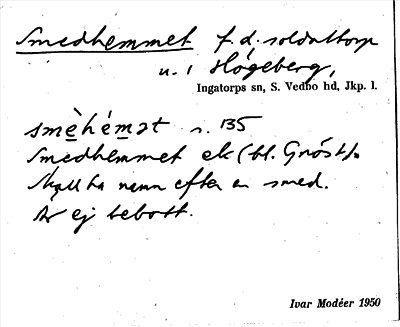 Smedhemmet f.d. soldattorp
u. 1 Högeberg,
Ingatorps sn, S. Vedbo hd, Jkp. l.
smèhémət s. 135
Smedhemmet ek (bl.
Skall ha namn efter en smed.
Är ej bebott.
Ivar Modéer 1950